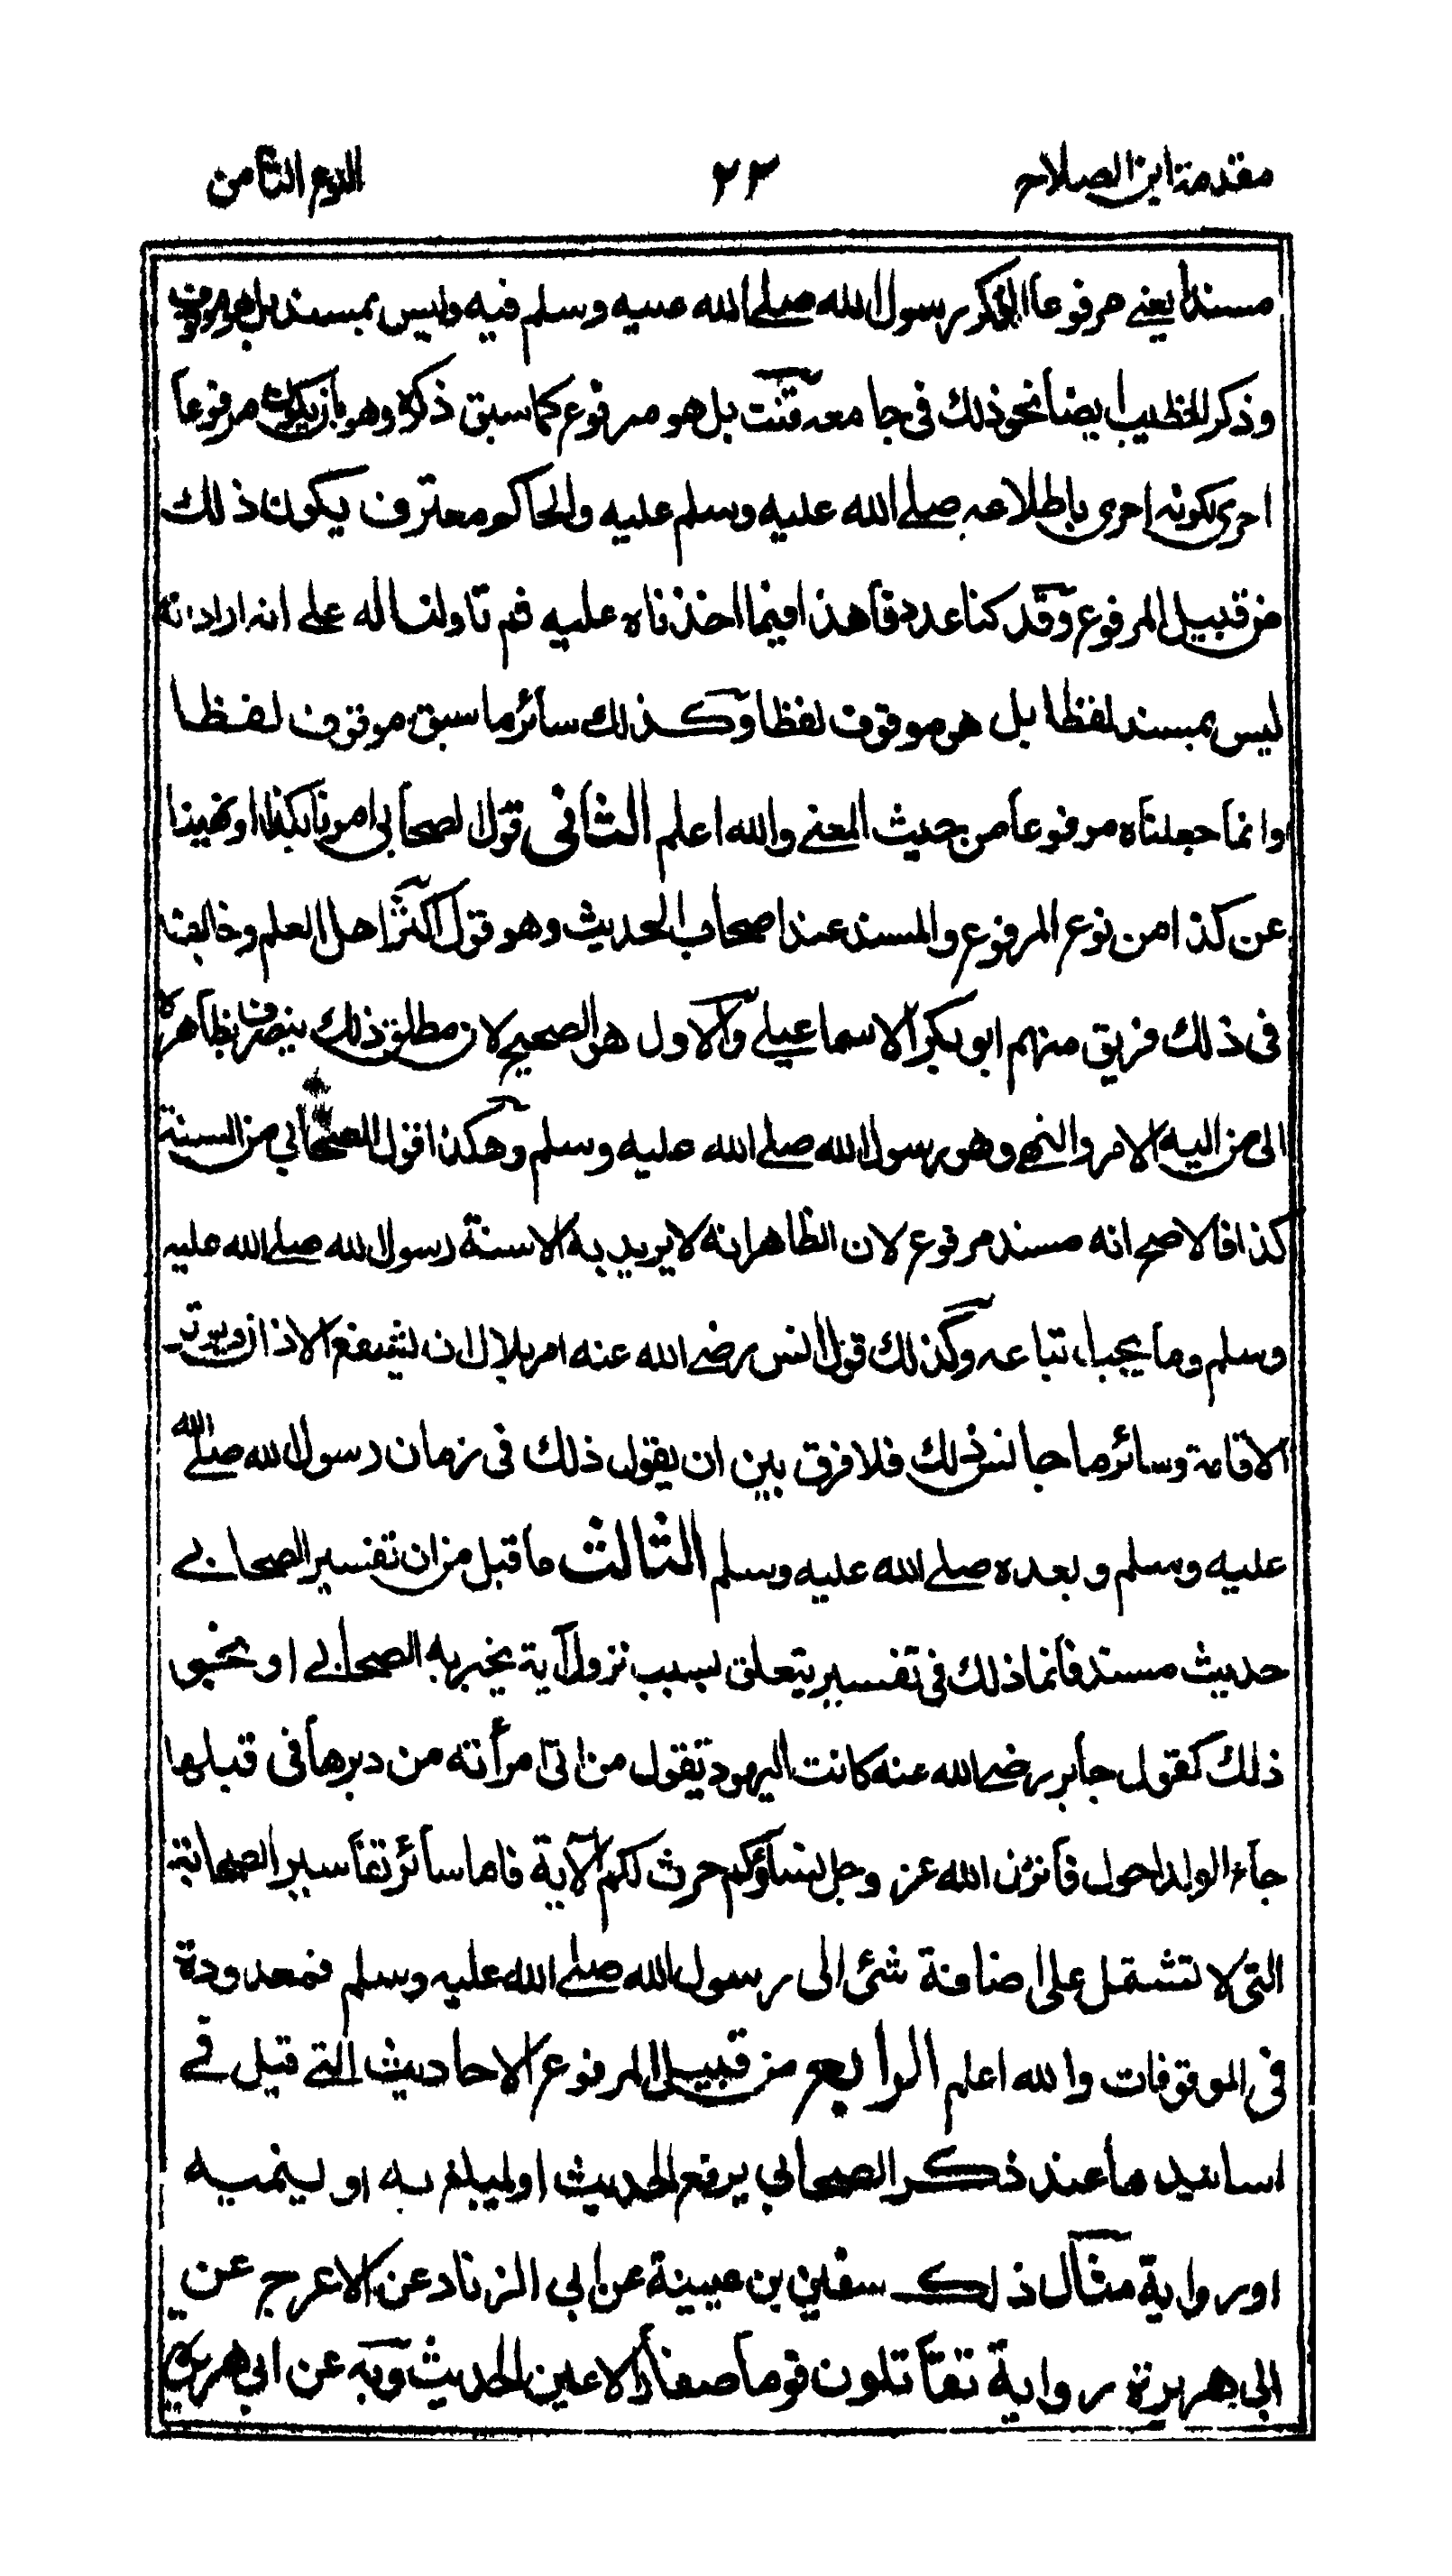 مقدمة ابن الصلاح ٢٢ النوع الثامن
مسندا يعنى مرفوعا لذكر رسول الله صلى الله عليه وسلم فيه وليس بمسند بل هو موقوف
وذكر الخطيب ايضا نحو ذلك فى جامعه قلت بل هو مرفوع كما سبق ذكره وهو بان يكون مرفوعا
احرى لكونه احرى باطلاعه صلى الله عليه وسلم عليه والحاكم معترف بكون ذلك
من قبيل المرفوع وقد كنا عددنا هذا فيما اخذناه عليه ثم تاولناه له على انه اراد انه
ليس بمسند لفظا بل هو موقوف لفظا وكذلك سائر ما سبق موقوف لفظا
وانما جعلناه مرفوعا من حيث المعنى والله اعلم الثانى قول الصحابى امرنا بكذا او نهينا
عن كذا من نوع المرفوع والمسند عند اصحاب الحديث وهو قول اكثر اهل العلم وخالف
فى ذلك فريق منهم ابو بكر الاسماعيلى والاول هو الصحيح لان مطلق ذلك ينصرف بظاهره
الى من اليه الامر والنهى وهو رسول الله صلى الله عليه وسلم وهكذا قول الصحابي من السنة
كذا فالاصح انه مسند مرفوع لان الظاهر انه لا يريد به الا سنة رسول الله صلى الله عليه
وسلم وما يجب اتباعه وكذلك قول انس رضى الله عنه امر بلال ان يشفع الاذان ويوتر
الاقامة وسائر ما جانس ذلك فلا فرق بين ان يقول ذلك فى زمان رسول الله صلى الله
عليه وسلم وبعده صلى الله عليه وسلم الثالث ما قيل من ان تفسير الصحابى
حديث مسند فانما ذلك فى تفسير يتعلق بسبب نزول آية يخبر به الصحابى او نحو
ذلك كقول جابر رضى الله عنه كانت اليهود تقول من اتى امرأته من دبرها فى قبلها
جاء الولد احول فانزل الله عز وجل نساؤكم حرث لكم الآية فاما سائر تفاسير الصحابة
التى لا تشتمل على اضافة شئ الى رسول الله صلى الله عليه وسلم فمعدودة
فى الموقوفات والله اعلم الرابع من قبيل المرفوع الاحاديث التى قيل فى
اسانيدها عند ذكر الصحابي يرفع الحديث او يبلغ به او ينميه
او رواية مثال ذلك سفين بن عيينة عن ابي الزناد عن الاعرج عن
ابى هريرة رواية تقاتلون قوما صغار الاعين الحديث وبه عن ابي هريرة